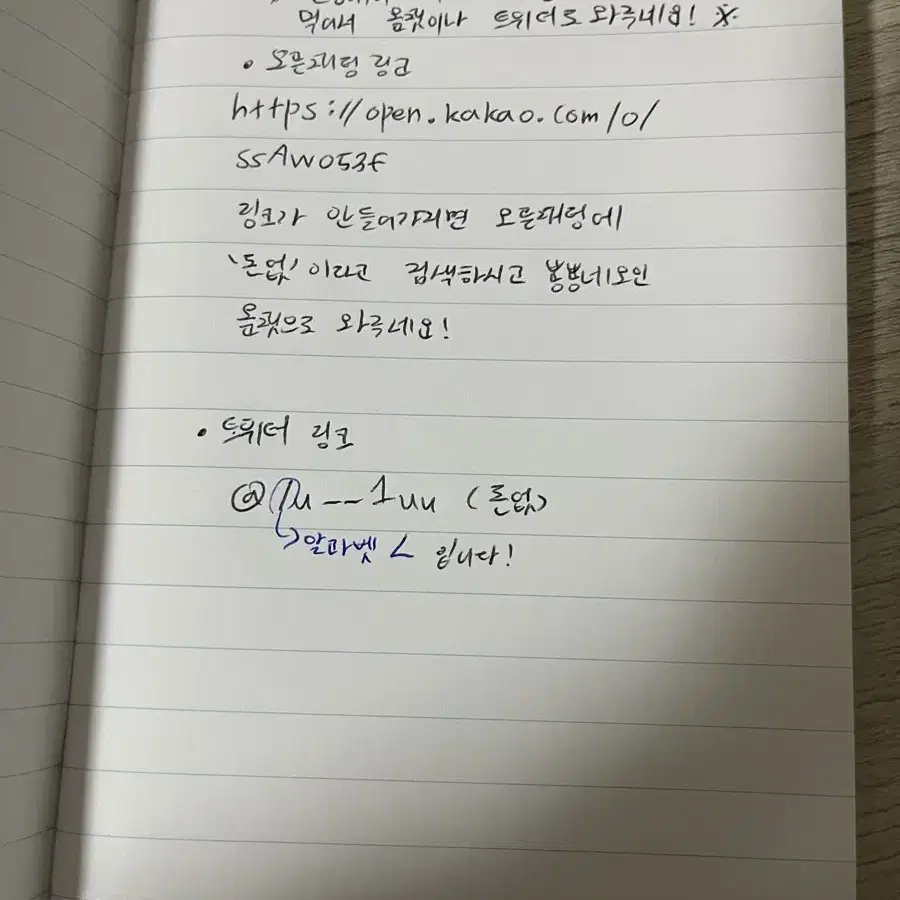 먹어서 옾챗이나 트위터로 와주세요! ※
• 오픈채팅 링크
https://open.kakao.com/o/
ssAW053f
링크가 안들어가지면 오픈채팅에
'돈없' 이라고 검색하시고 뿅뿅네모인
옾챗으로 와주세요!
• 트위터 링크
@lu__1uu (돈없)
알파벳 L 입니다!